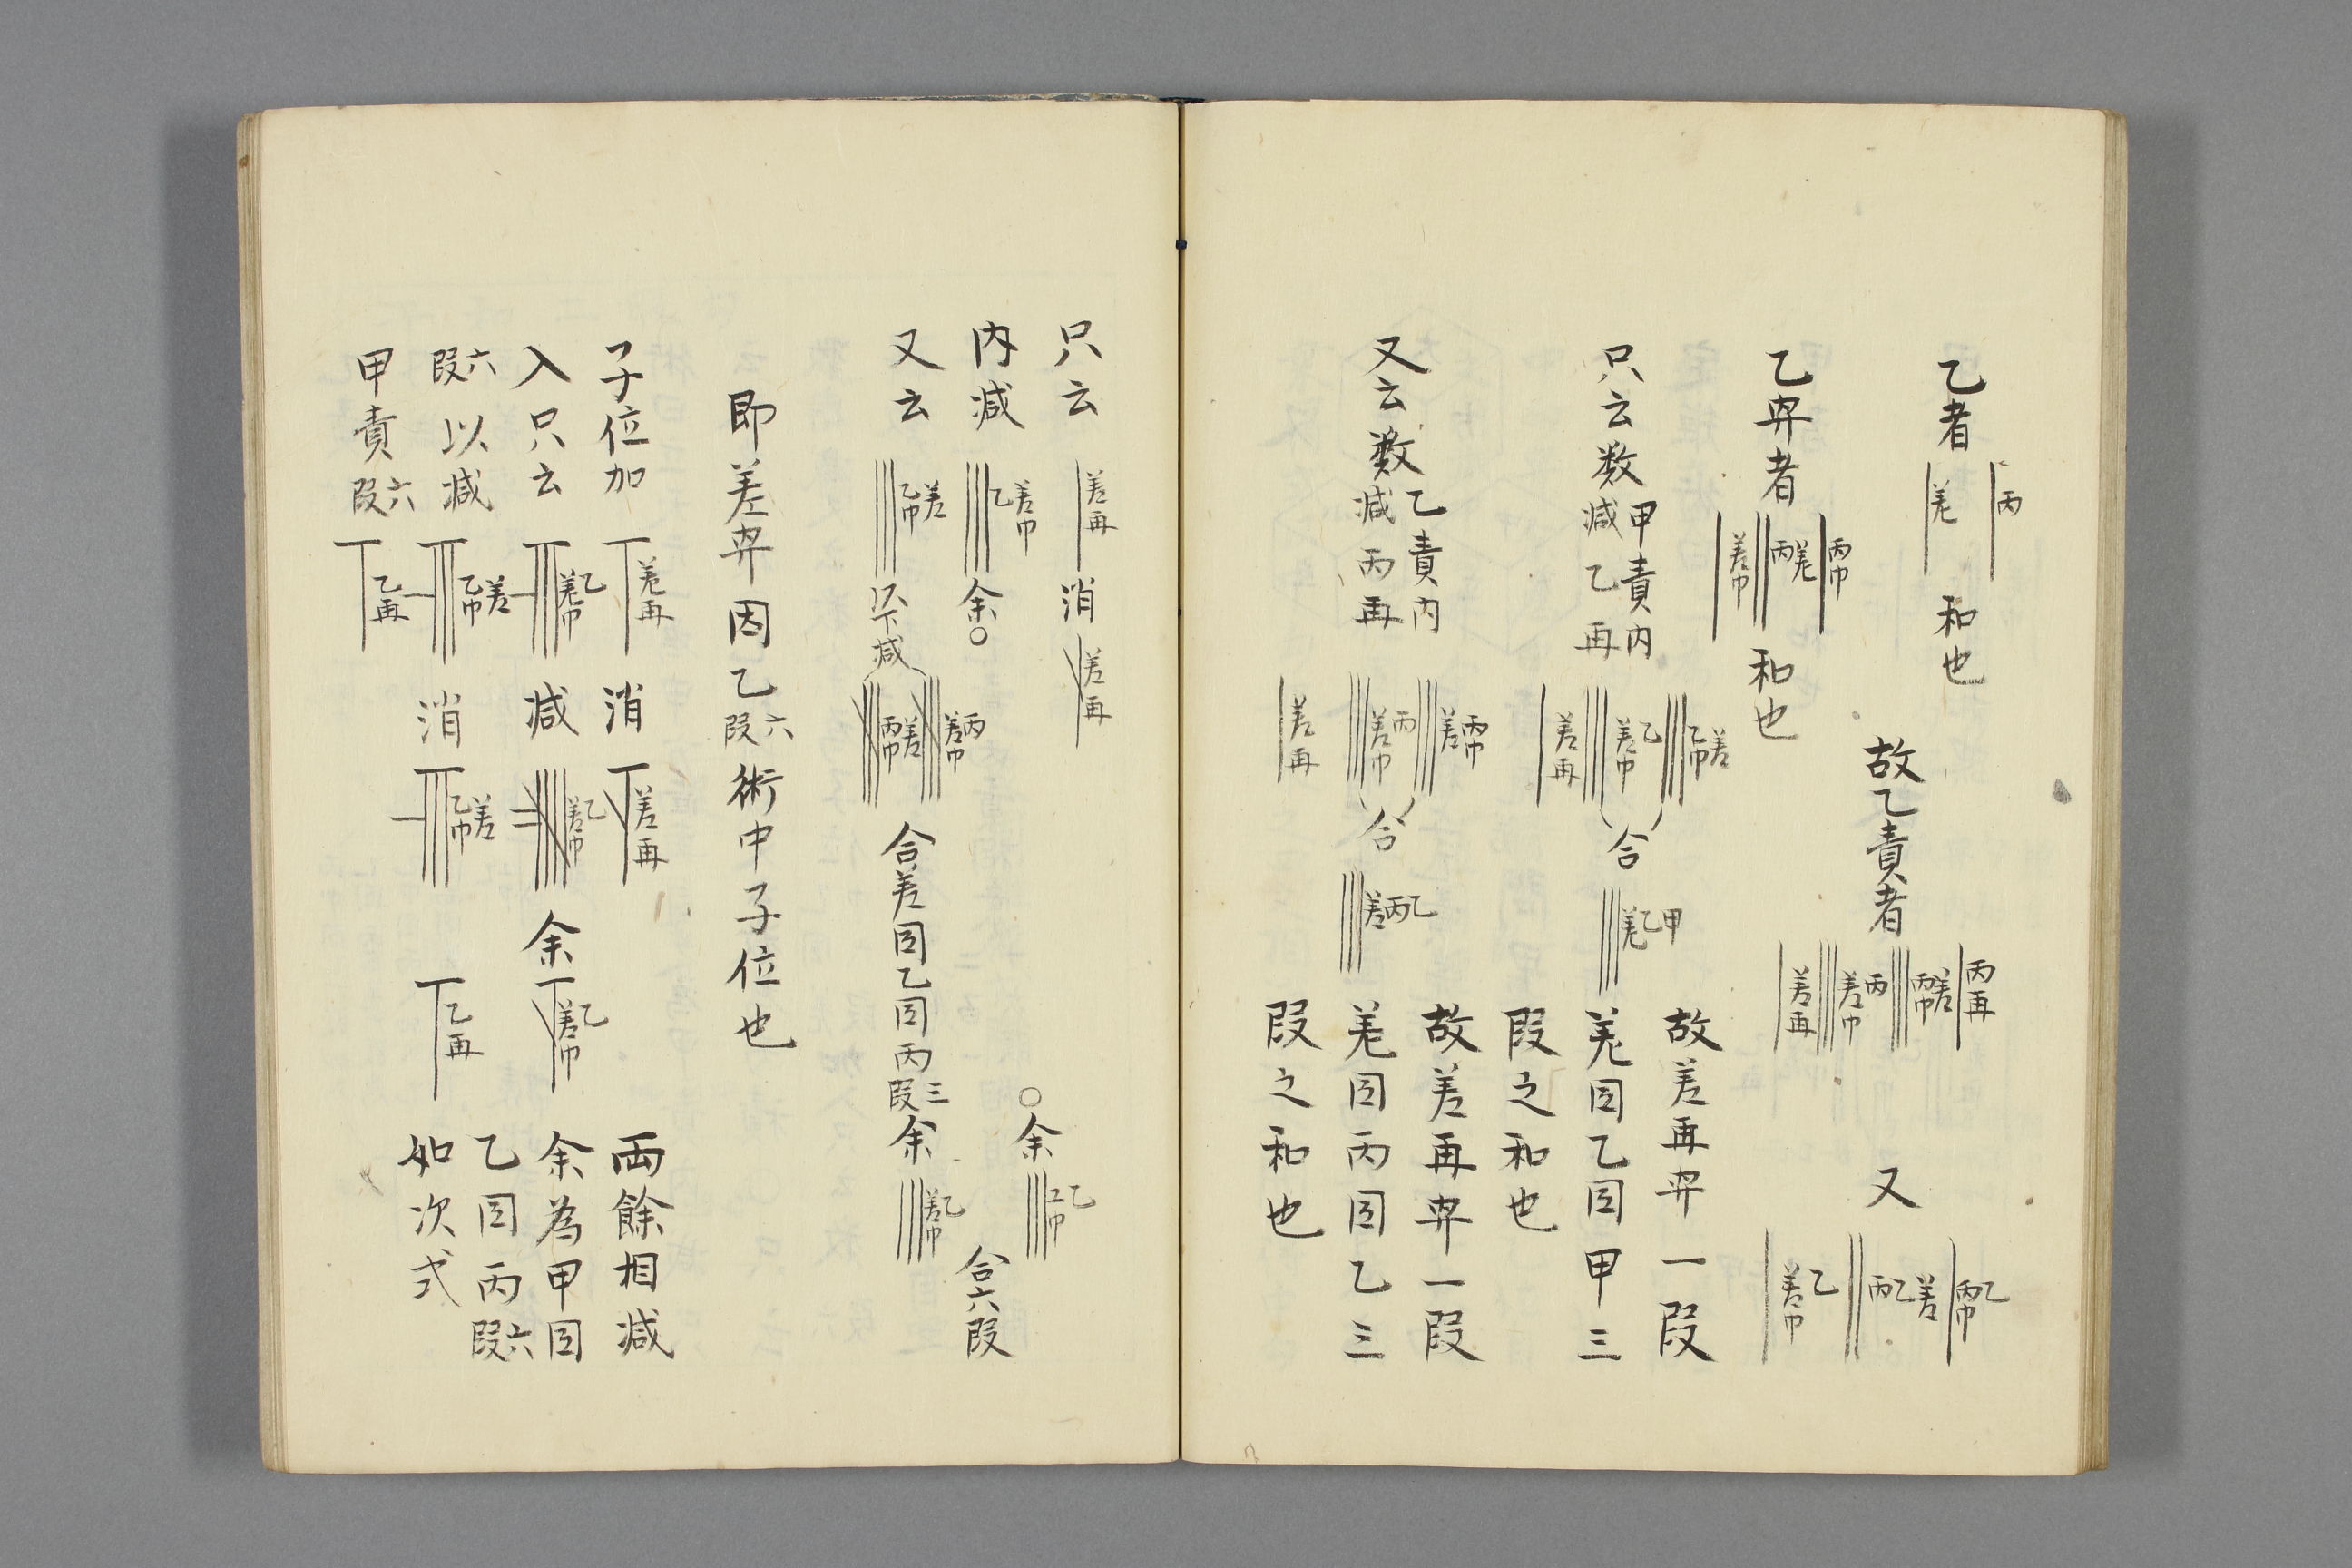 乙者 丙 差 和也
故乙責者 丙再 差丙巾 丙差巾 差再
又 乙丙巾 差乙丙 乙差巾
乙再者 丙巾 丙差 差巾 和也
只云数 甲責内減乙再 差乙巾 乙差巾 差再 合 甲乙差
故差再再一段
差因乙因甲三
段之和也
又云数 乙責内減丙再 丙巾差 丙差巾 差再 合 乙丙差
故差再再一段
差因丙因乙三
段之和也
只云 差再 消 差再
内減 差巾乙 余〇
〇余 乙巾
又云 差乙巾 以下減 丙差巾 差丙巾 合差因乙因丙三段余 乙差巾
合六段
即差再因乙六段術中子位也
子位加 差再 消 差再
入只云 乙差巾 減 乙差巾 余 乙差巾
六段以減 差乙巾 消 差乙巾 乙再
甲責六段 乙再
両餘相減
余為甲因
乙因丙六段
如次式